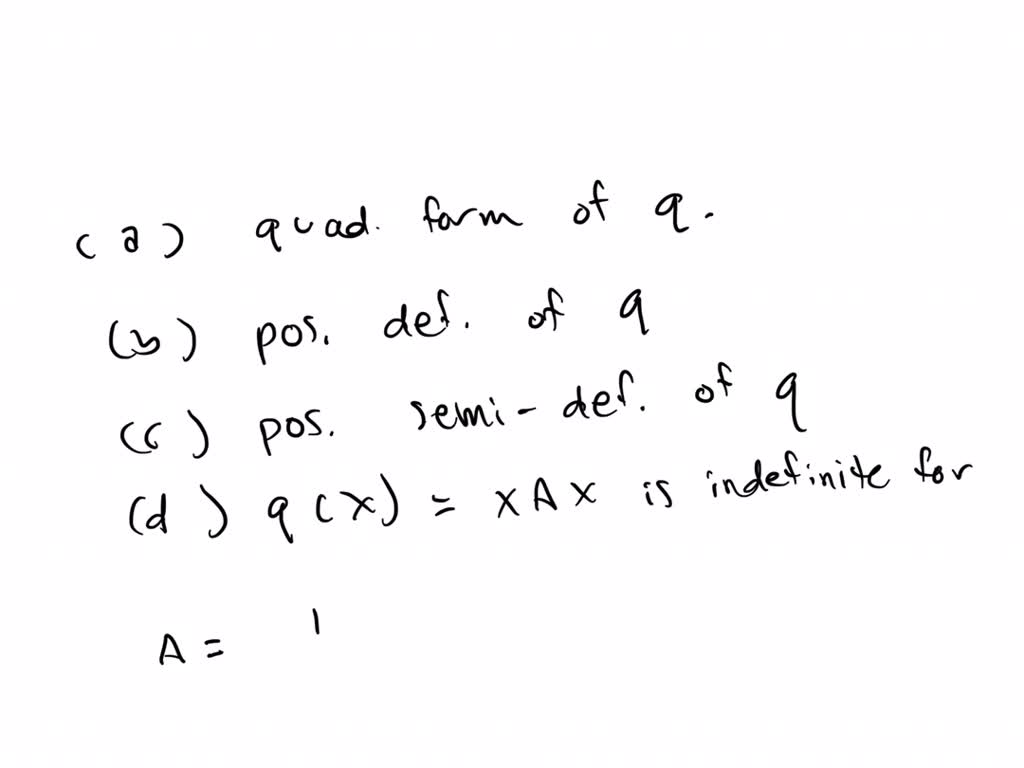 (a) quad. form of q.
(b) pos. def. of q
(c) pos. semi-def. of q
(d) q(x) = xAx is indefinite for
A = 1